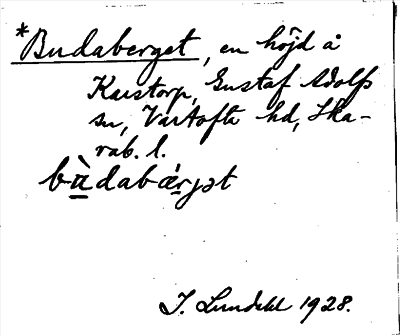 *Budaberget, en höjd å
Karstorp, Gustaf Adolfs
sn, Vartofta hd, Ska-
rab. l.
bùdabǽrjət
J. Lundahl 1928.